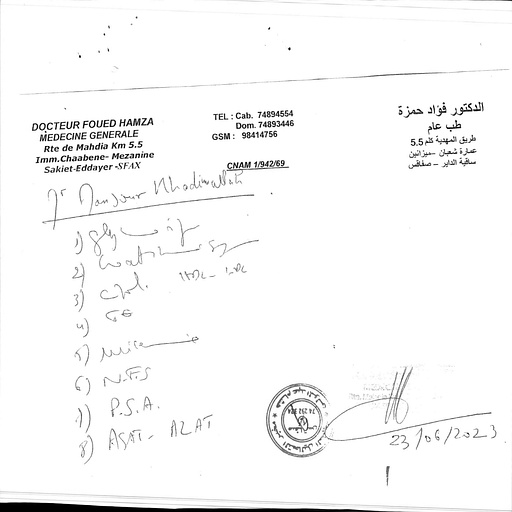 DOCTEUR FOUED HAMZA
MEDECINE GENERALE
Rte de Mahdia Km 5.5
Imm.Chaabene- Mezanine
Sakiet-Eddayer -SFAX
TEL : Cab. 74894554
Dom. 74893446
GSM : 98414756
CNAM 1/942/69
الدكتور فؤاد حمزة
طب عام
طريق المهدية كلم 5.5
عمارة شعبان - ميزانين
ساقية الداير - صفاقس
Mr Mansour Khadimallah
1)
2)
3) Chol. HDL - LDL
4) TG
5)
6) N.F.S
7) P.S.A.
8) ASAT - ALAT
23/06/2023